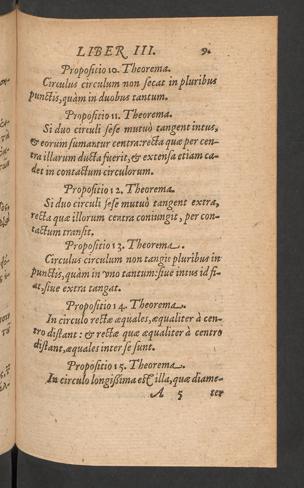 LIBER III. 9.
Propositio 10. Theorema.
Circulus circulum non secat in pluribus
punctis, quàm in duobus tantum.
Propositio 11. Theorema.
Si duo circuli sese mutuò tangent intus,
& eorum sumantur centra: recta quæ per cen-
tra illarum ducta fuerit, & extensa etiam ca-
det in contactum circulorum.
Propositio 12. Theorema.
Si duo circuli sese mutuò tangent extra,
recta quæ illorum centra coniungit, per con-
tactum transit.
Propositio 13. Theorema.
Circulus circulum non tangit pluribus in
punctis, quàm in vno tantum: siue intus id fi-
at, siue extra tangat.
Propositio 14. Theorema.
In circulo rectæ æquales, æqualiter à cen-
tro distant: & rectæ quæ æqualiter à centro
distant, æquales inter se sunt.
Propositio 15. Theorema.
In circulo longissima est illa, quæ diame-
A 5 ter